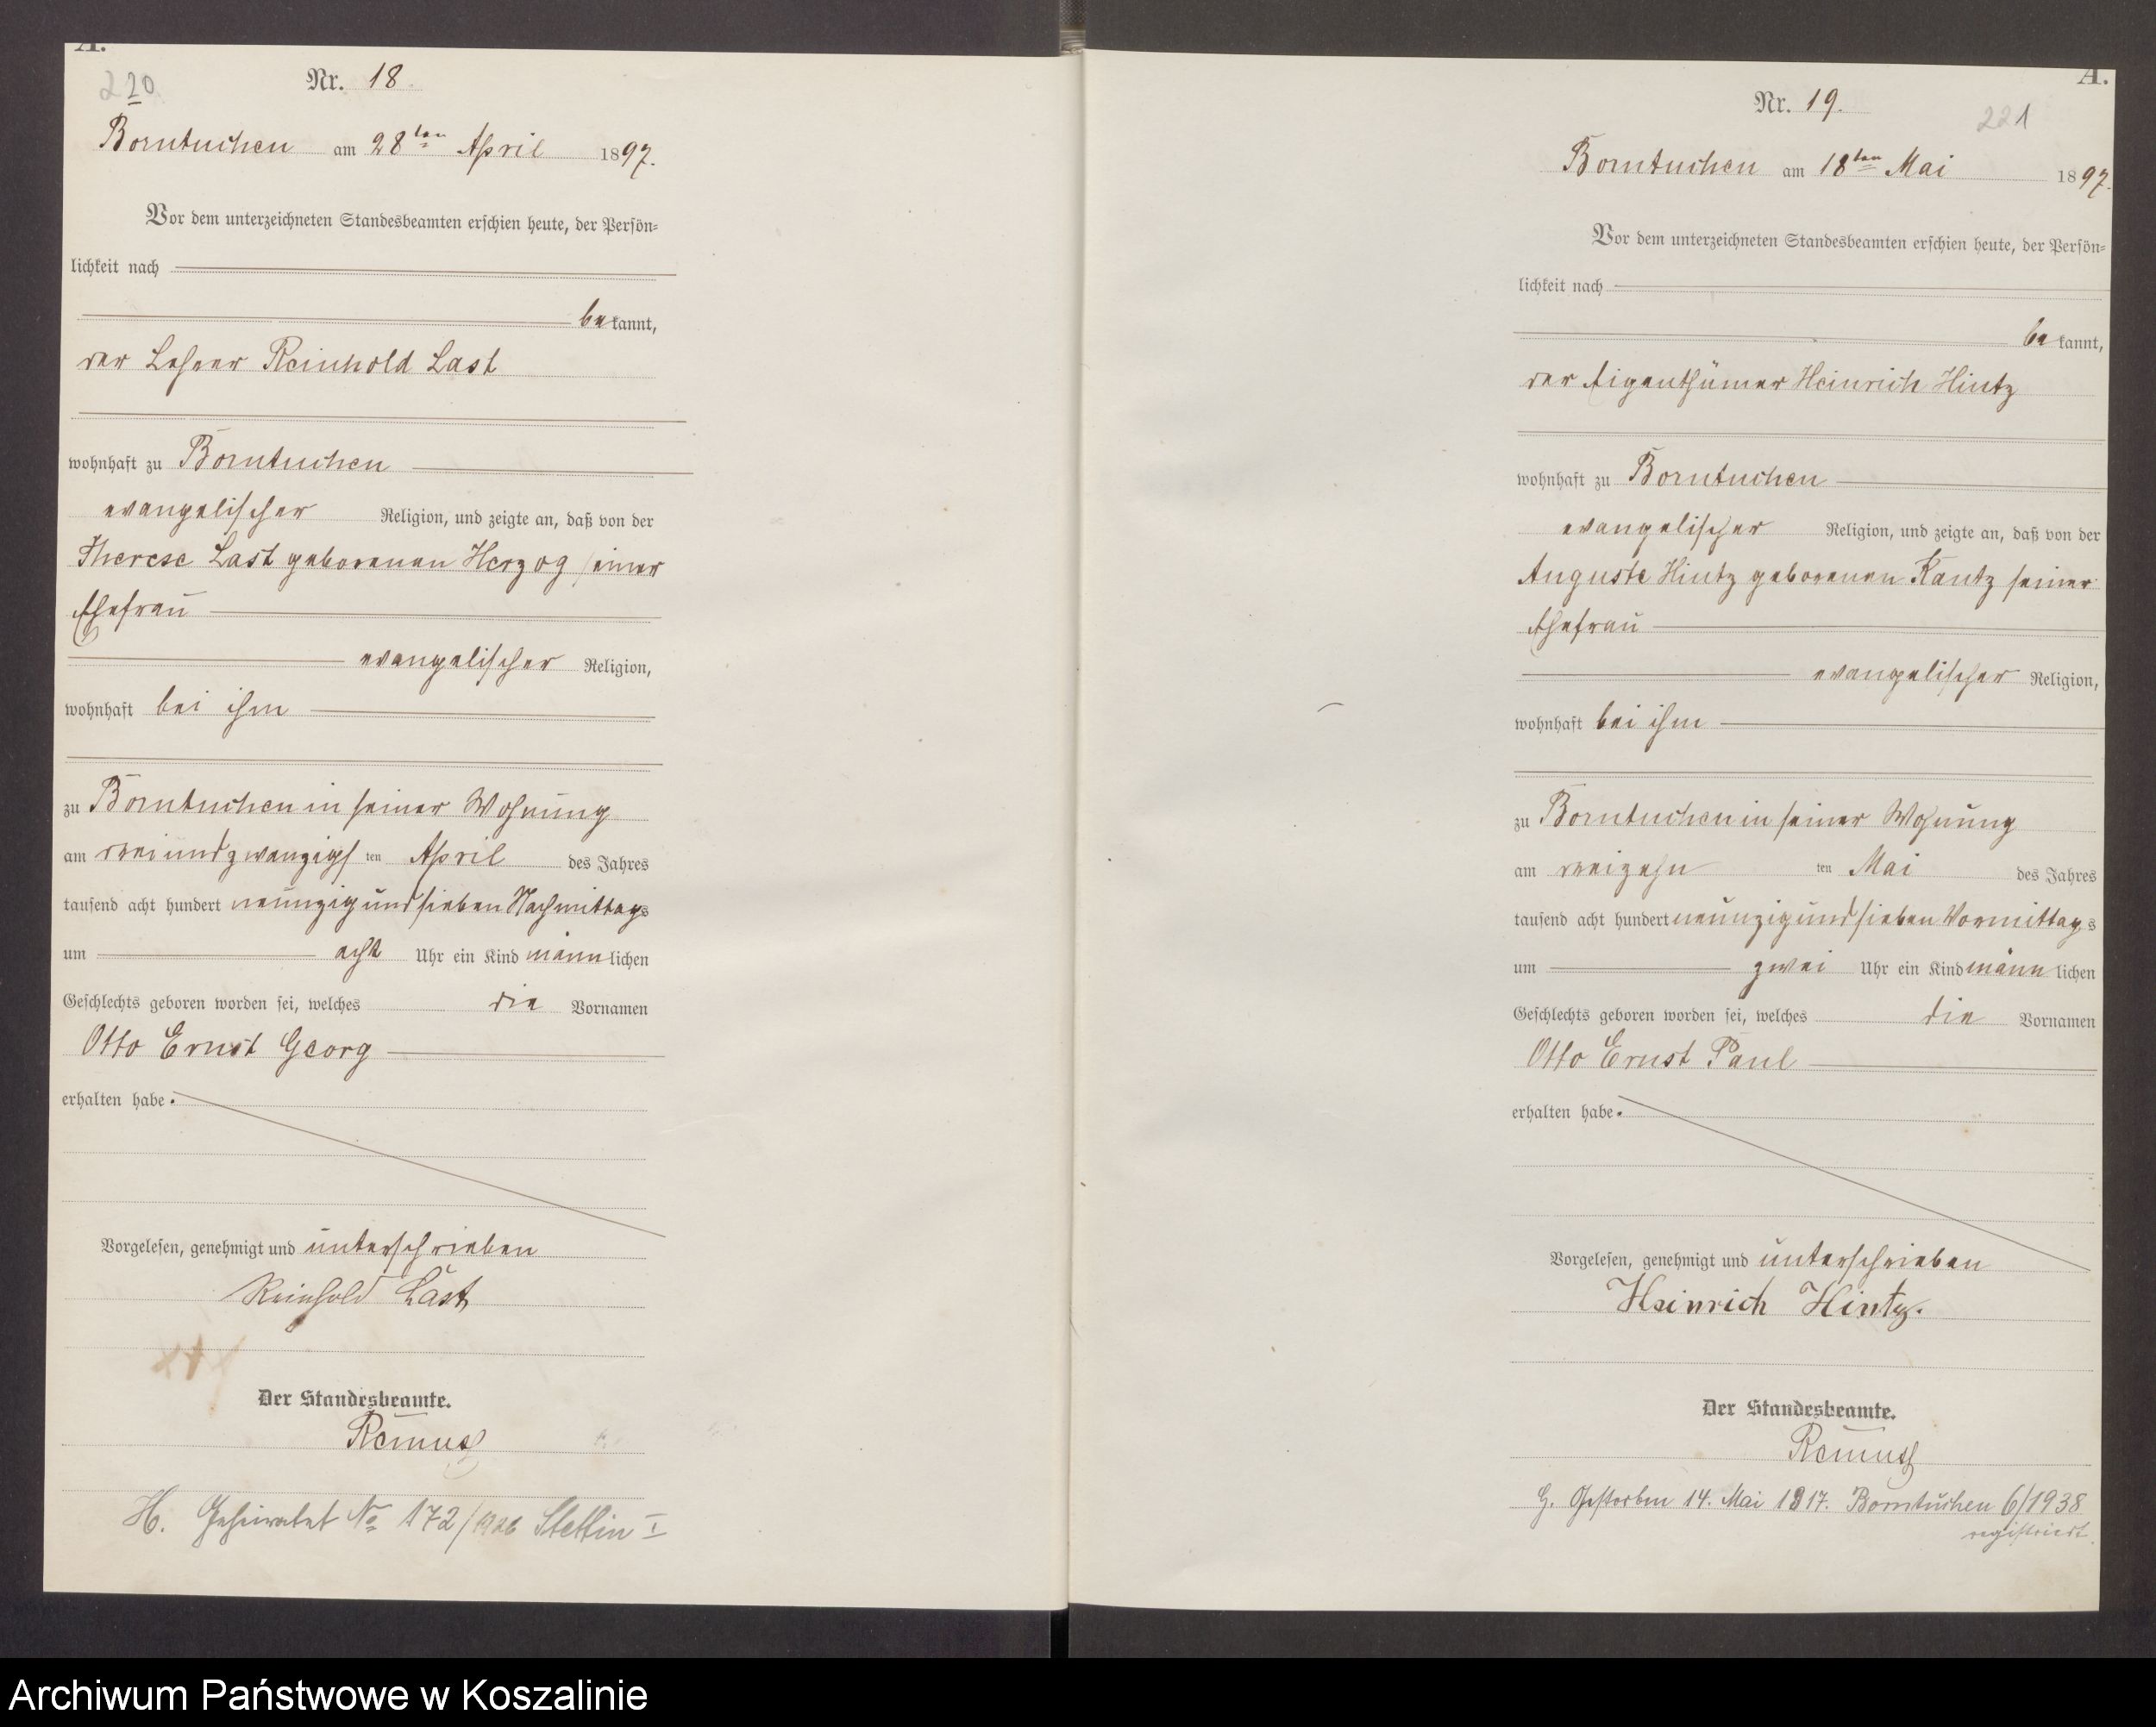 A.
220
Nr. 18.
Borntuchen am 28ten April 1897.
Vor dem unterzeichneten Standesbeamten erschien heute, der Persön-
lichkeit nach
bekannt,
der Lehrer Reinhold Last
wohnhaft zu Borntuchen
evangelischer Religion, und zeigte an, daß von der
Therese Last geborenen Herzog seiner
Ehefrau
evangelischer Religion,
wohnhaft bei ihm
zu Borntuchen in seiner Wohnung
am dreiundzwanzigsten April des Jahres
tausend acht hundert neunzig und sieben Nachmittags
um acht Uhr ein Kind männlichen
Geschlechts geboren worden sei, welches die Vornamen
Otto Ernst Georg
erhalten habe.
Vorgelesen, genehmigt und unterschrieben
Reinhold Last
Der Standesbeamte.
Remus
H. Geheiratet No 172/1926 Stettin I
A.
Nr. 19.
221
Borntuchen am 18ten Mai 1897.
Vor dem unterzeichneten Standesbeamten erschien heute, der Persön-
lichkeit nach
bekannt,
der Eigenthümer Heinrich Hintz
wohnhaft zu Borntuchen
evangelischer Religion, und zeigte an, daß von der
Auguste Hintz geborenen Kautz seiner
Ehefrau
evangelischer Religion,
wohnhaft bei ihm
zu Borntuchen in seiner Wohnung
am dreizehnten Mai des Jahres
tausend acht hundert neunzig und sieben Vormittags
um zwei Uhr ein Kind männlichen
Geschlechts geboren worden sei, welches die Vornamen
Otto Ernst Paul
erhalten habe.
Vorgelesen, genehmigt und unterschrieben
Heinrich Hintz.
Der Standesbeamte.
Remus
G. Gestorben 14. Mai 1917. Borntuchen 6/1938
registriert.
Archiwum Państwowe w Koszalinie